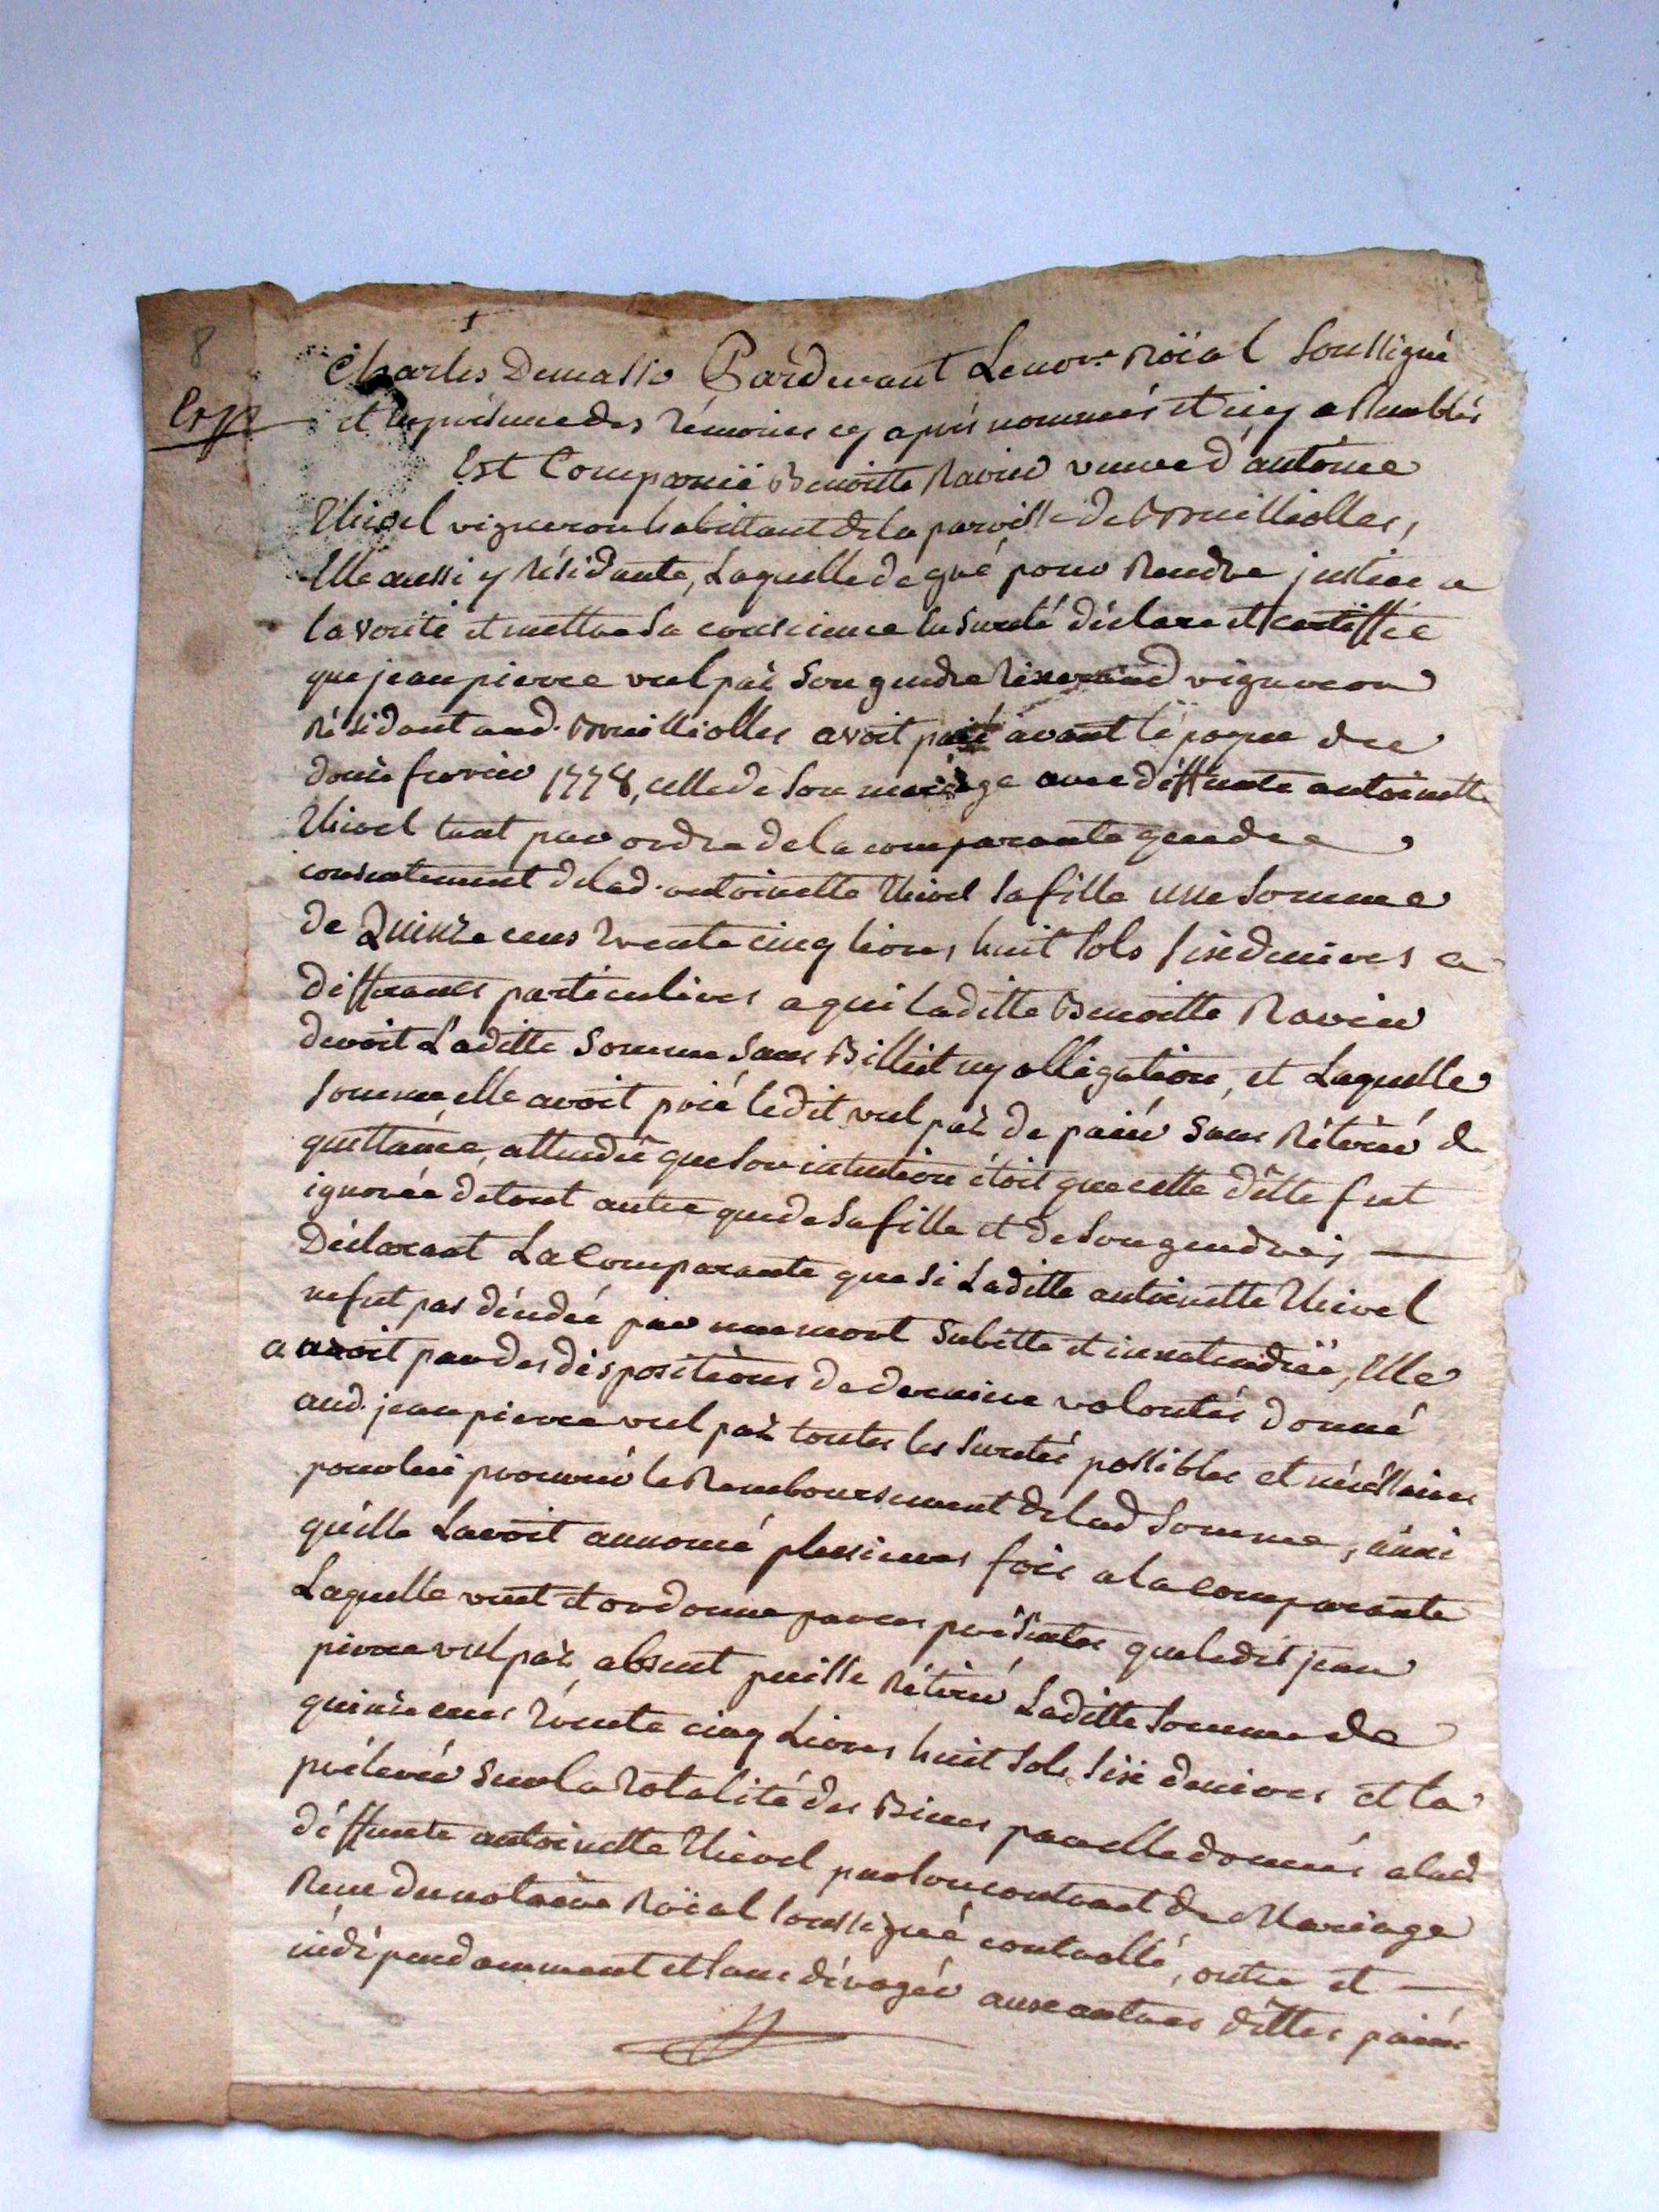 8
Exp
Charles Demasso Pardevant Le no.re Roïal soussigné
et en présence des témoins cy après nommés et icy assemblés
Est Comparüe Benoitte Ravier veuve d'antoine
Thivel vigneron habittant de la paroisse de Brullioles,
Elle aussi y Résidante, Laquelle de gré pour Rendre justice a
la vérité et mettre sa conscience en sureté déclare et certiffie
que jean pierre vulpaz son gendre vigneron
Résidant aud. Brulliolles avoit païé avant l'époque du
douze fevrier 1778, celle de son mariage avec déffunte antoinette
Thivel tant par ordre de la comparante que de
consentement de lad. antoinette Thivel sa fille une somme
de Quinze cens trente cinq livres huit sols six deniers a
differants particuliers a qui laditte Benoitte Ravier
devoit Laditte somme sans Billiet ny obligation, et Laquelle
somme elle avoit prié ledit vulpaz de païer sans Rétirer de
quittance, attendu que son intention étoit que cette dette fut
ignorée de tout autre que de sa fille et de son gendre;
Déclarant La Comparante que si Laditte antoinette Thivel
ne fut pas décédée par une mort subitte et innatenduë, Elle
auroit par des dispositions de derniere volontés donné
aud. jean pierre vulpaz toutes les suretés possibles et nécéssaires
pour lui procurer le Remboursement de lad somme, ainsi
qu'elle Lavoit annoncé plusieurs fois a la comparante
Laquelle veut et ordonne par ces présentes que ledit jean
pierre vulpaz absent puisse Rétirer Laditte somme de
quinze cens trente cinq Livres huit sols six deniers et la
prélever sur la totalité des Biens par elle donnés a lad
déffunte antoinette Thivel par son contract de Mariage
Reçu du notaire Roïal soussigné controllé, outre et
indépendamment et sans déroger aux autres dettes païées